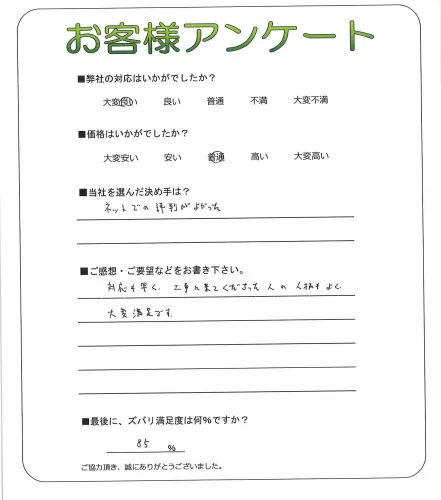 お客様アンケート
■弊社の対応はいかがでしたか？
大変良い 良い 普通 不満 大変不満
■価格はいかがでしたか？
大変安い 安い 普通 高い 大変高い
■当社を選んだ決め手は？
ネットでの評判がよかった
■ご感想・ご要望などをお書き下さい。
対応も早く、工事に来てくださった人の人柄もよく
大変満足です。
■最後に、ズバリ満足度は何%ですか？
85 %
ご協力頂き、誠にありがとうございました。